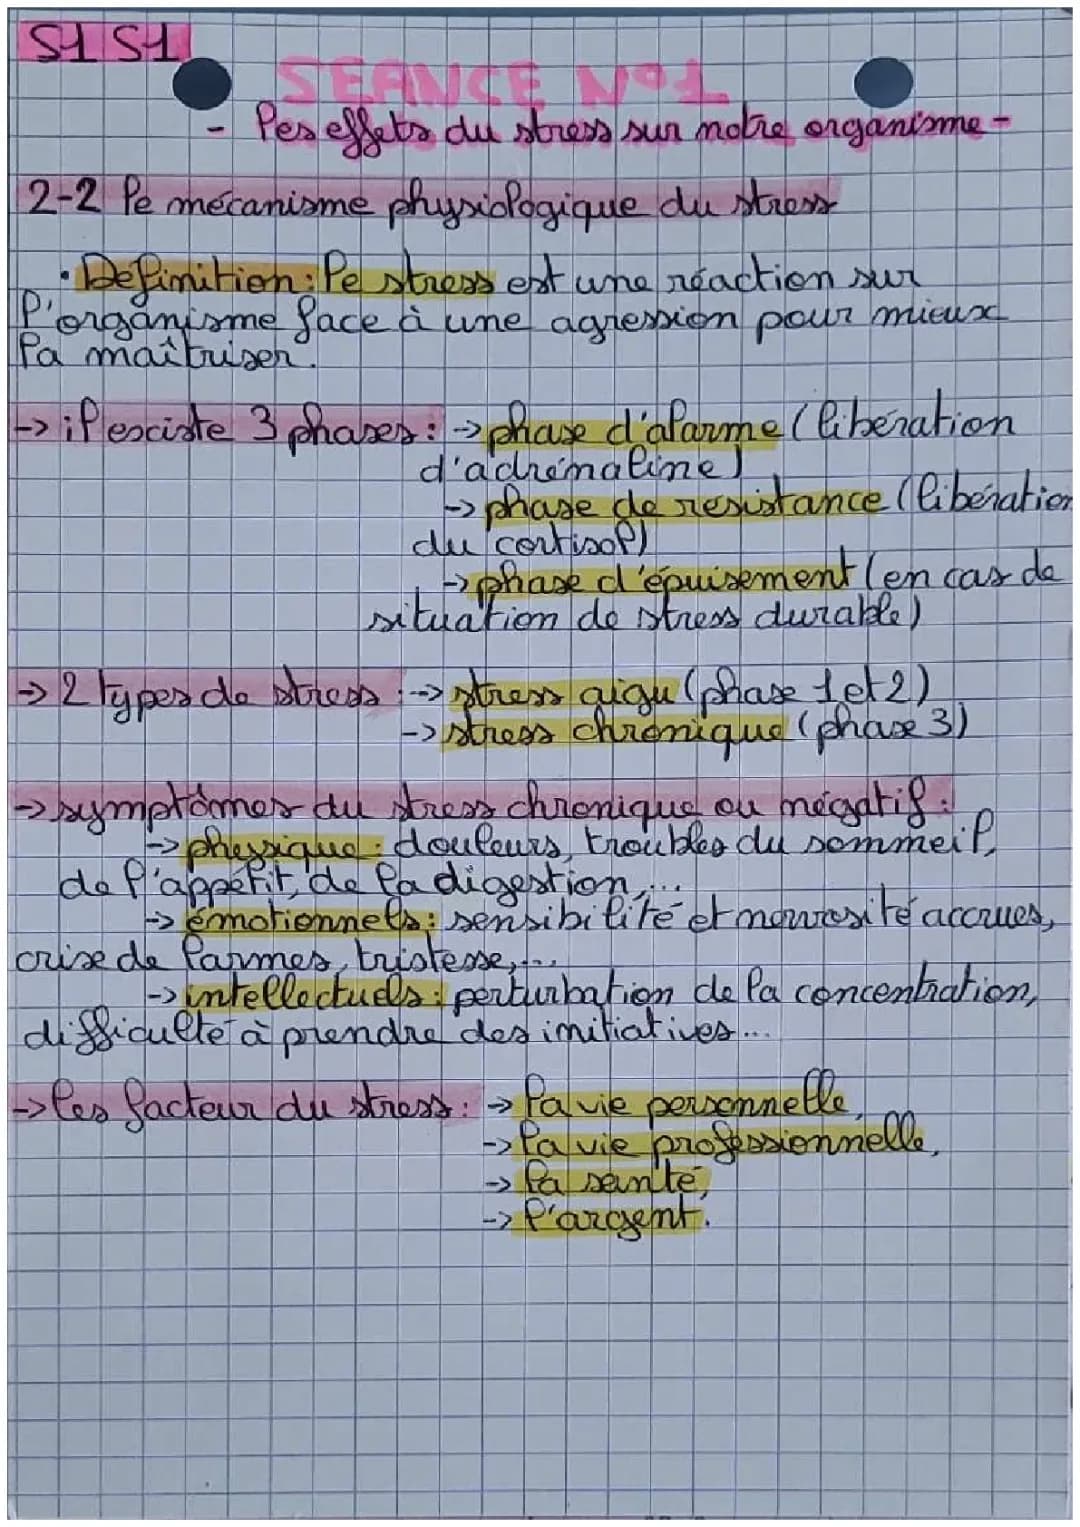 S1 S1
SEANCE N°1
- Les effets du stress sur notre organisme -
2-2 Le mécanisme physiologique du stress
• Définition: Le stress est une réaction sur
l'organisme face à une agression pour mieux
la maîtriser.
-> il esciste 3 phases: -> phase d'alarme (libération
d'adrénaline)
-> phase de resistance (libération
du cortisol)
-> phase d'épuisement (en cas de
situation de stress durable)
-> 2 types de stress : -> stress aigu (phase 1 et 2)
-> stress chronique (phase 3)
-> symptômes du stress chronique ou négatif:
-> physique: douleurs, troubles du sommeil,
de l'appétit, de la digestion,...
-> émotionnels: sensibilité et nervosité accrues,
crise de larmes, tristesse,...
-> intellectuels: perturbation de la concentration,
difficulté à prendre des initiatives...
-> les facteur du stress: -> la vie personnelle,
-> la vie professionnelle,
-> la santé,
-> l'argent.